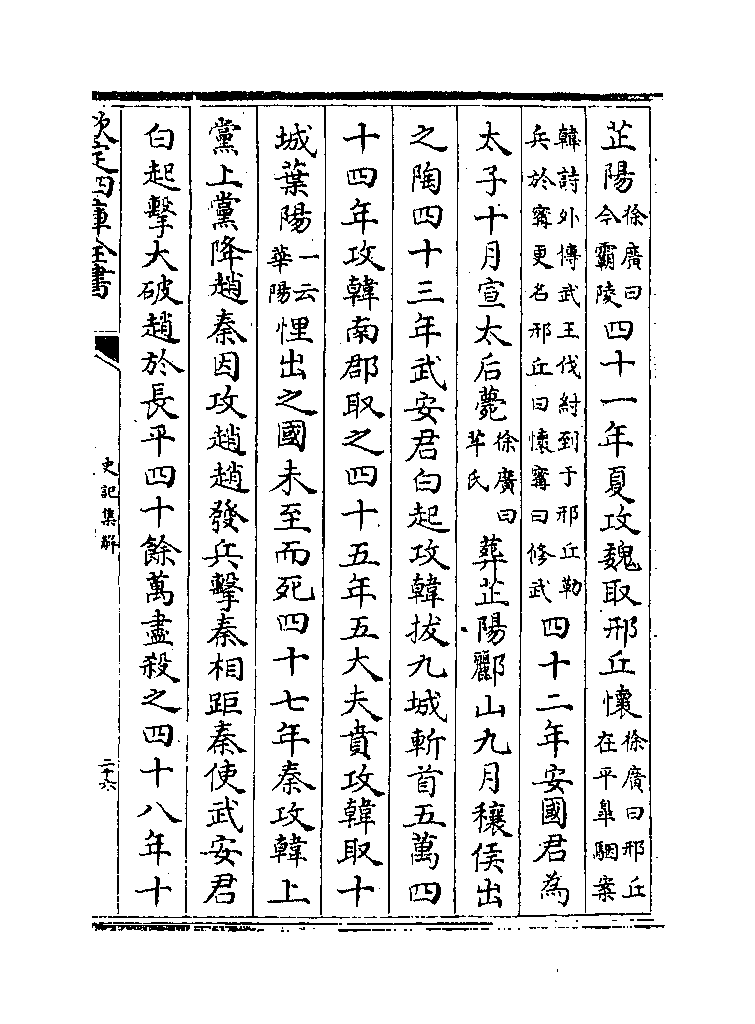 芷陽徐廣曰今霸陵四十一年夏攻魏取邢丘懷徐廣曰邢丘在平臯駰案
韓詩外傳武王伐紂到于邢丘勒兵於寗更名邢丘曰懷寗曰修武四十二年安國君為
太子十月宣太后薨徐廣曰芈氏葬芷陽酈山九月穰侯出
之陶四十三年武安君白起攻韓拔九城斬首五萬四
十四年攻韓南郡取之四十五年五大夫賁攻韓取十
城葉陽一云華陽悝出之國未至而死四十七年秦攻韓上
黨上黨降趙秦因攻趙趙發兵擊秦相距秦使武安君
白起擊大破趙於長平四十餘萬盡殺之四十八年十
欽定四庫全書
史記集解
二十六